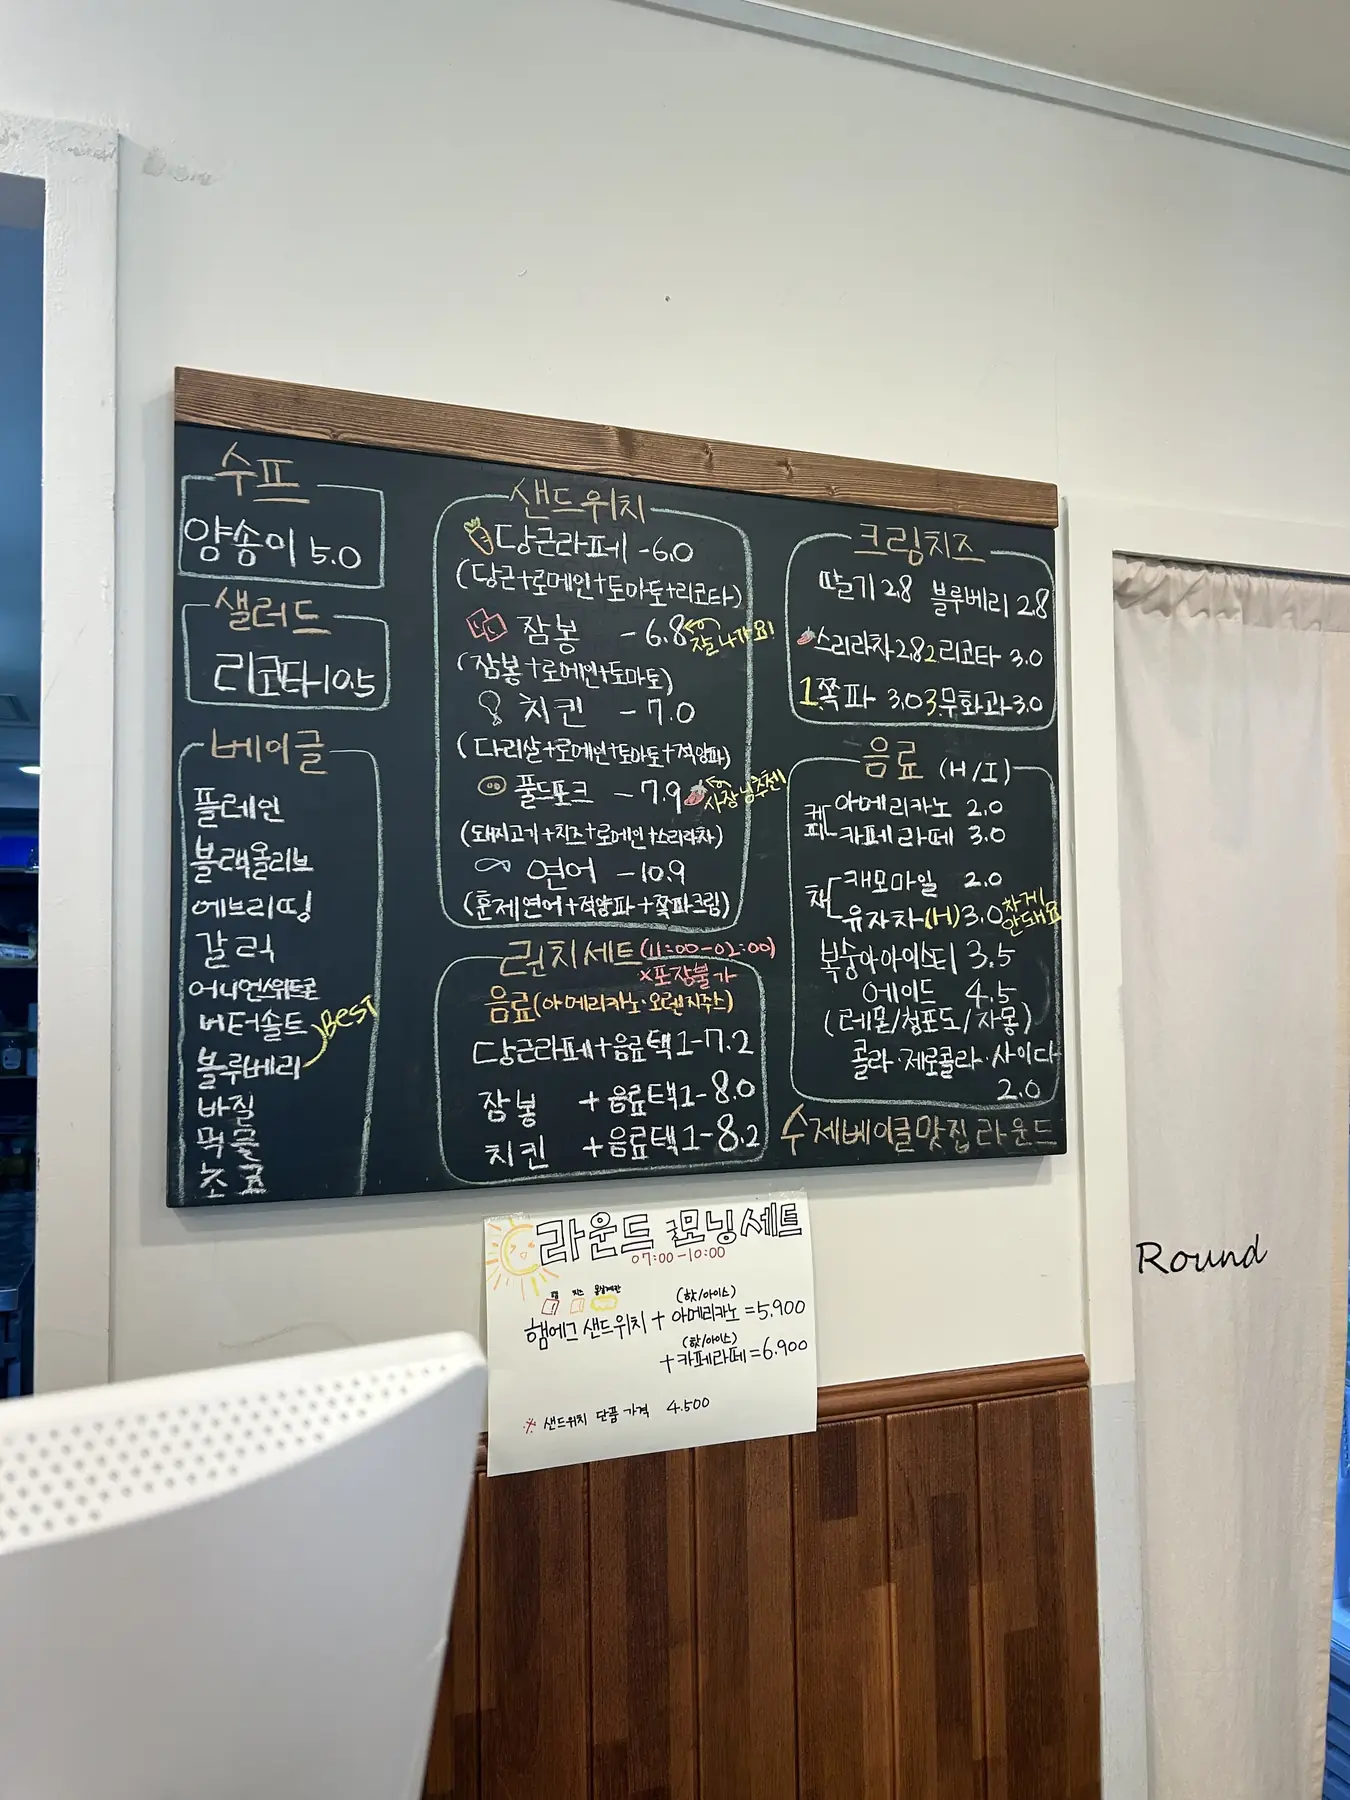 수프
양송이 5.0
샐러드
리코타 10.5
베이글
플레인
블랙올리브
에브리띵
갈릭
어니언스위트콘
버터솔트
블루베리
BEST
바질
먹물
초코
샌드위치
당근라페 -6.0
(당근+로메인+토마토+리코타)
잠봉 -6.8 잘나가요!
(잠봉+로메인+토마토)
치킨 -7.0
(다리살+로메인+토마토+적양파)
풀드포크 -7.9 사장님추천!
(돼지고기+치즈+로메인+스리라차)
연어 -10.9
(훈제연어+적양파+쪽파크림)
런치세트 (11:00-02:00)
×포장불가
음료(아메리카노·오렌지주스)
당근라페+음료택1-7.2
잠봉 +음료택1-8.0
치킨 +음료택1-8.2
크림치즈
딸기 2.8 블루베리 2.8
스리라차 2.8 2.리코타 3.0
1.쪽파 3.0 3.무화과 3.0
음료 (H/I)
커피 아메리카노 2.0
카페라떼 3.0
차 캐모마일 2.0
유자차(H) 3.0 차게 안돼요
복숭아아이스티 3.5
에이드 4.5
(레몬/청포도/자몽)
콜라·제로콜라·사이다
2.0
수제베이글맛집라운드
라운드 굿모닝세트
07:00-10:00
햄 치즈
(핫/아이스)
햄에그 샌드위치 + 아메리카노 =5,900
(핫/아이스)
+카페라떼 =6,900
※ 샌드위치 단품 가격 4,500
Round